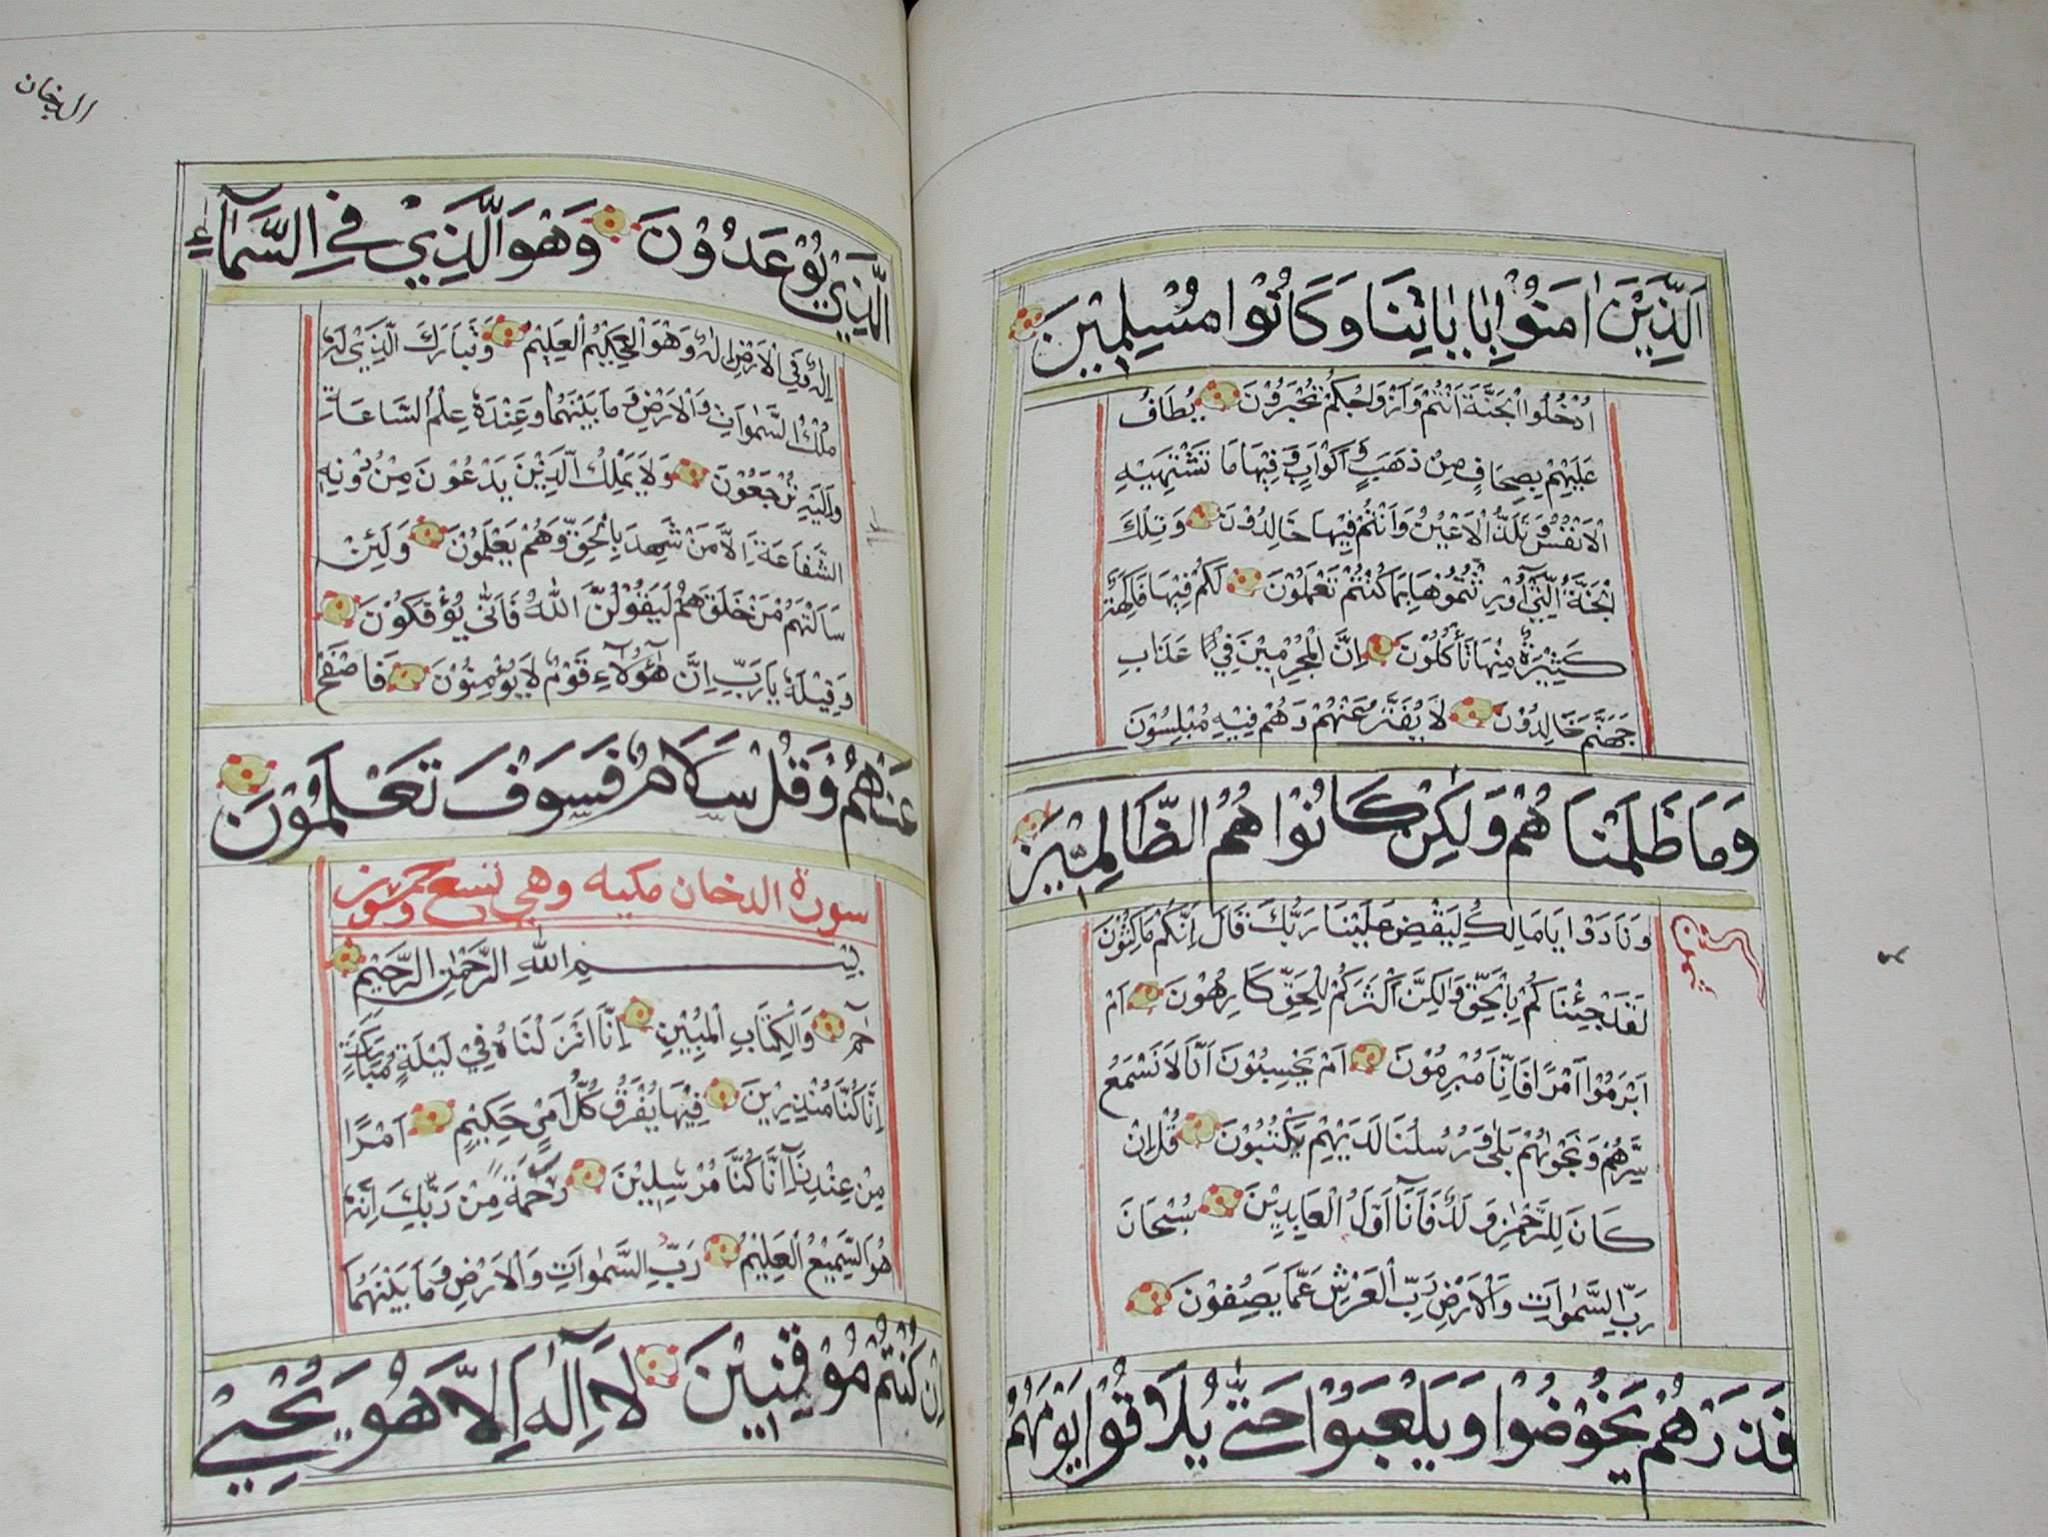 اَلَّذِيْنَ اٰمَنُوْا بِاٰيَاتِنَا وَكَانُوْا مُسْلِمِيْنَ
اُدْخُلُوا الْجَنَّةَ اَنْتُمْ وَاَزْوَاجُكُمْ تُحْبَرُوْنَ يُطَافُ
عَلَيْهِمْ بِصِحَافٍ مِنْ ذَهَبٍ وَاَكْوَابٍ وَفِيْهَا مَا تَشْتَهِيْهِ
الْاَنْفُسُ وَتَلَذُّ الْاَعْيُنُ وَاَنْتُمْ فِيْهَا خَالِدُوْنَ وَتِلْكَ
الْجَنَّةُ الَّتِيْ اُوْرِثْتُمُوْهَا بِمَا كُنْتُمْ تَعْمَلُوْنَ لَكُمْ فِيْهَا فَاكِهَةٌ
كَثِيْرَةٌ مِنْهَا تَأْكُلُوْنَ اِنَّ الْمُجْرِمِيْنَ فِيْ عَذَابِ
جَهَنَّمَ خَالِدُوْنَ لَا يُفَتَّرُ عَنْهُمْ وَهُمْ فِيْهِ مُبْلِسُوْنَ
وَمَا ظَلَمْنَاهُمْ وَلٰكِنْ كَانُوْا هُمُ الظَّالِمِيْنَ
وَنَادَوْا يَا مَالِكُ لِيَقْضِ عَلَيْنَا رَبُّكَ قَالَ اِنَّكُمْ مَاكِثُوْنَ
لَقَدْ جِئْنَاكُمْ بِالْحَقِّ وَلٰكِنَّ اَكْثَرَكُمْ لِلْحَقِّ كَارِهُوْنَ اَمْ
اَبْرَمُوْا اَمْرًا فَاِنَّا مُبْرِمُوْنَ اَمْ يَحْسَبُوْنَ اَنَّا لَا نَسْمَعُ
سِرَّهُمْ وَنَجْوٰهُمْ بَلٰى وَرُسُلُنَا لَدَيْهِمْ يَكْتُبُوْنَ قُلْ اِنْ
كَانَ لِلرَّحْمٰنِ وَلَدٌ فَاَنَا اَوَّلُ الْعَابِدِيْنَ سُبْحَانَ
رَبِّ السَّمٰوَاتِ وَالْاَرْضِ رَبِّ الْعَرْشِ عَمَّا يَصِفُوْنَ
فَذَرْهُمْ يَخُوْضُوْا وَيَلْعَبُوْا حَتّٰى يُلَاقُوْا يَوْمَهُمُ
الدخان
الَّذِيْ يُوْعَدُوْنَ وَهُوَ الَّذِيْ فِي السَّمَآءِ
اِلٰهٌ وَفِي الْاَرْضِ اِلٰهٌ وَهُوَ الْحَكِيْمُ الْعَلِيْمُ وَتَبَارَكَ الَّذِيْ لَهُ
مُلْكُ السَّمٰوَاتِ وَالْاَرْضِ وَمَا بَيْنَهُمَا وَعِنْدَهُ عِلْمُ السَّاعَةِ
وَاِلَيْهِ تُرْجَعُوْنَ وَلَا يَمْلِكُ الَّذِيْنَ يَدْعُوْنَ مِنْ دُوْنِهِ
الشَّفَاعَةَ اِلَّا مَنْ شَهِدَ بِالْحَقِّ وَهُمْ يَعْلَمُوْنَ وَلَئِنْ
سَاَلْتَهُمْ مَنْ خَلَقَهُمْ لَيَقُوْلُنَّ اللّٰهُ فَاَنّٰى يُؤْفَكُوْنَ
وَقِيْلِهِ يَا رَبِّ اِنَّ هٰٓؤُلَآءِ قَوْمٌ لَا يُؤْمِنُوْنَ فَاصْفَحْ
عَنْهُمْ وَقُلْ سَلَامٌ فَسَوْفَ تَعْلَمُوْنَ
سورة الدخان مكيه وهي تسع خمسون
بِسْمِ اللّٰهِ الرَّحْمٰنِ الرَّحِيْمِ
حٰمٓ وَالْكِتَابِ الْمُبِيْنِ اِنَّا اَنْزَلْنَاهُ فِيْ لَيْلَةٍ مُبَارَكَةٍ
اِنَّا كُنَّا مُنْذِرِيْنَ فِيْهَا يُفْرَقُ كُلُّ اَمْرٍ حَكِيْمٍ اَمْرًا
مِنْ عِنْدِنَا اِنَّا كُنَّا مُرْسِلِيْنَ رَحْمَةً مِنْ رَبِّكَ اِنَّهُ
هُوَ السَّمِيْعُ الْعَلِيْمُ رَبِّ السَّمٰوَاتِ وَالْاَرْضِ وَمَا بَيْنَهُمَا
اِنْ كُنْتُمْ مُوْقِنِيْنَ لَآ اِلٰهَ اِلَّا هُوَ يُحْيِيْ